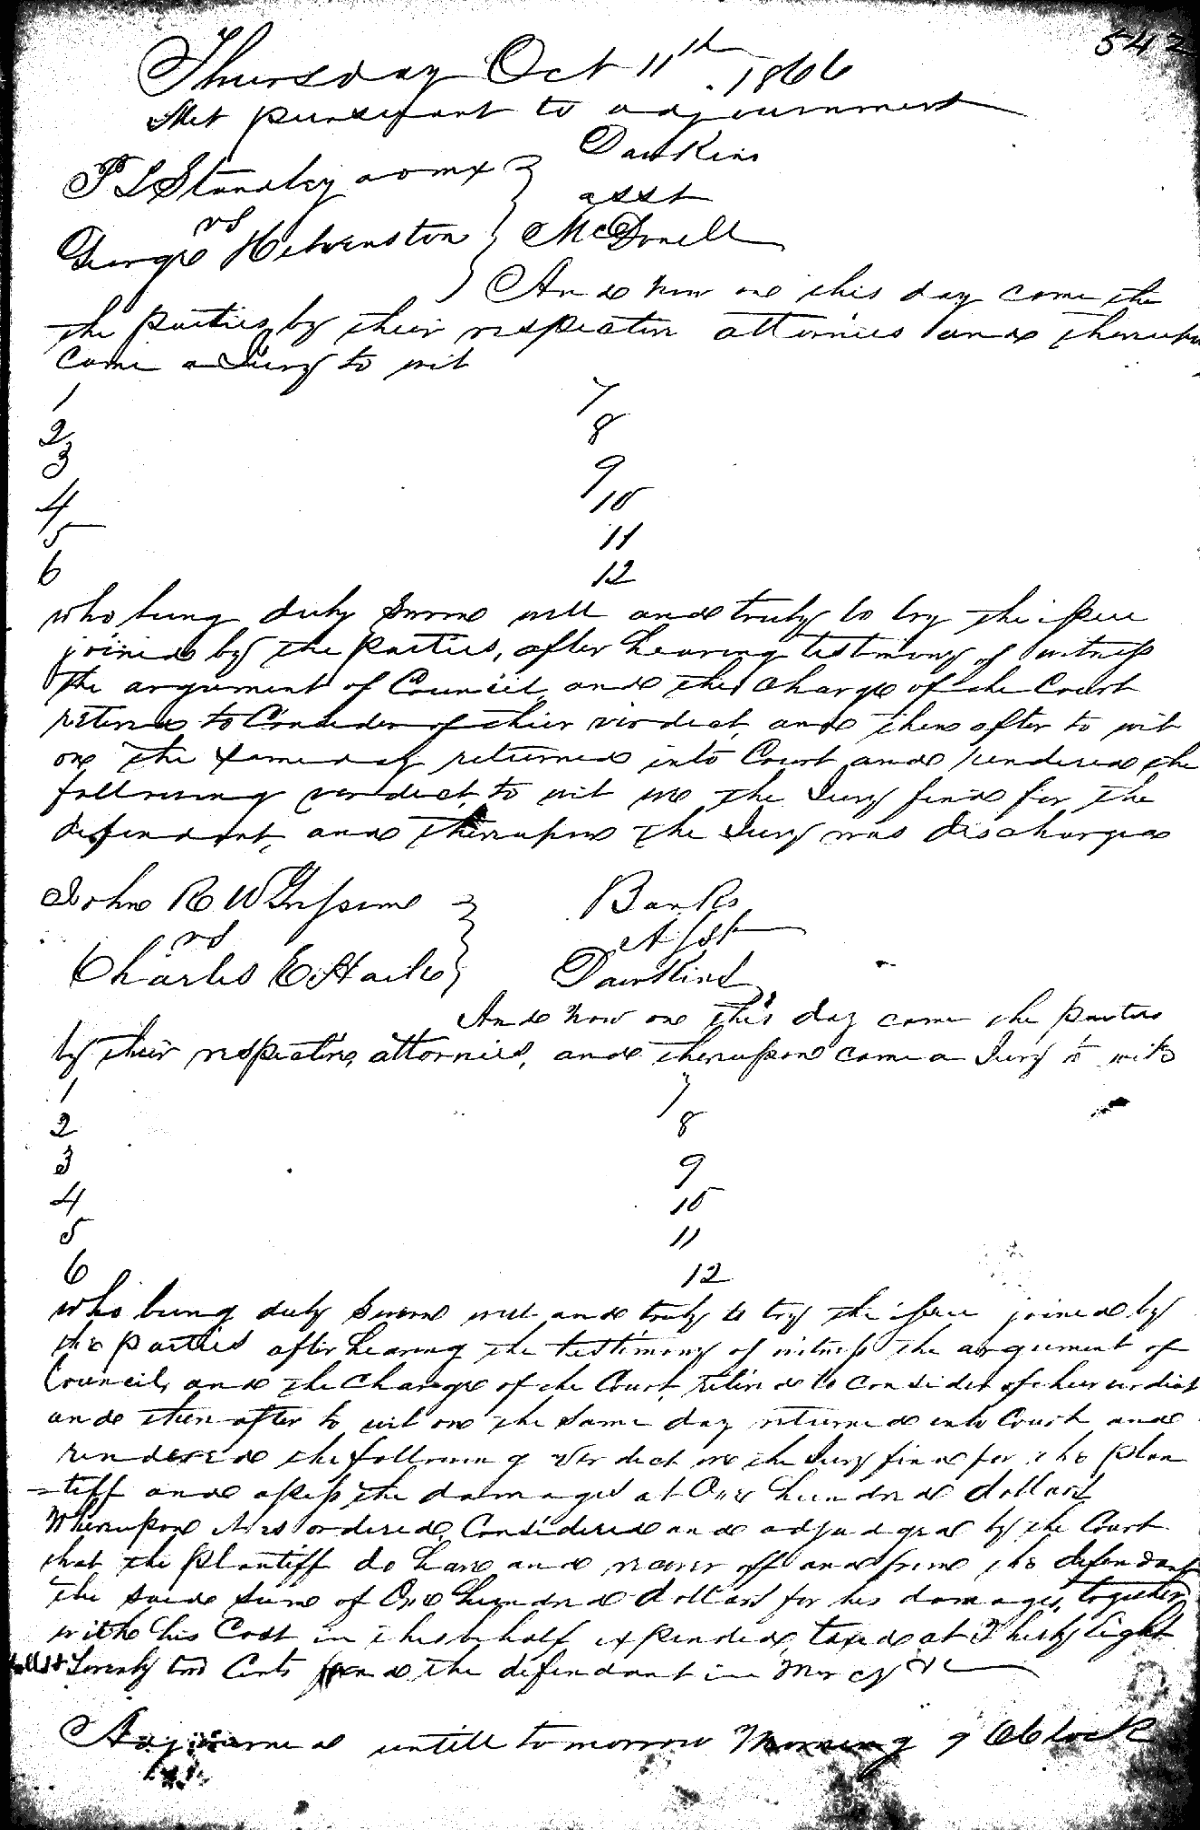 542
Thursday Oct 11th 1866
Met pursuant to adjournment
P L Standley admx } Dawkins
vs } asst
George Helvenston } McDonell
And now on this day come the
the parties by their respective attornies and thereupon
came a Jury to wit
1 7
2 8
3 9
4 10
5 11
6 12
who being duly sworn well and truly to try the issue
joined by the parties, after hearing testimony of witness
the argument of Council and the charge of the Court
retired to Consider of thier virdect, and then after to wit
on the same day returned into Court and rendered the
following virdect, to wit we the Jury find for the
defendant, and thereupon the Jury was discharged
John R W } Banks
vs } Asst
Charles E Haile } Dawkins
And now on this day came the parties
by their respective, attornies, and thereupon came a Jury to wit
1 7
2 8
3 9
4 10
5 11
6 12
who being duly sworn well and truly to try the issue joined by
the parties after hearing the testimony of witness the argument of
Council, and the Charge of the Court, retired to consider of their verdict
and then after to wit on the same day returned into Court and
rendered the following Verdict we the Jury find for the plan
=tiff and assess the damages at One hundred dollars
Whereupon it is ordered, Considered and adjudged by the Court
that the plantiff do have and recover off and from the defendant
the said sum of One hundred dollars for his damages, together
with his Cost in this behalf expended, taxed at Thirty Eight
dolls & Twenty two Cents and the defendant in Mercy &c
Adjourned untill tomorrow Morning 9 Oclock